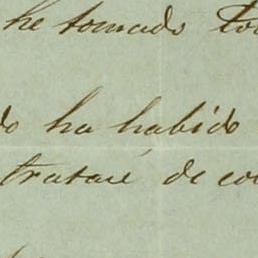 he tomado to
do ha habido
trataré de co